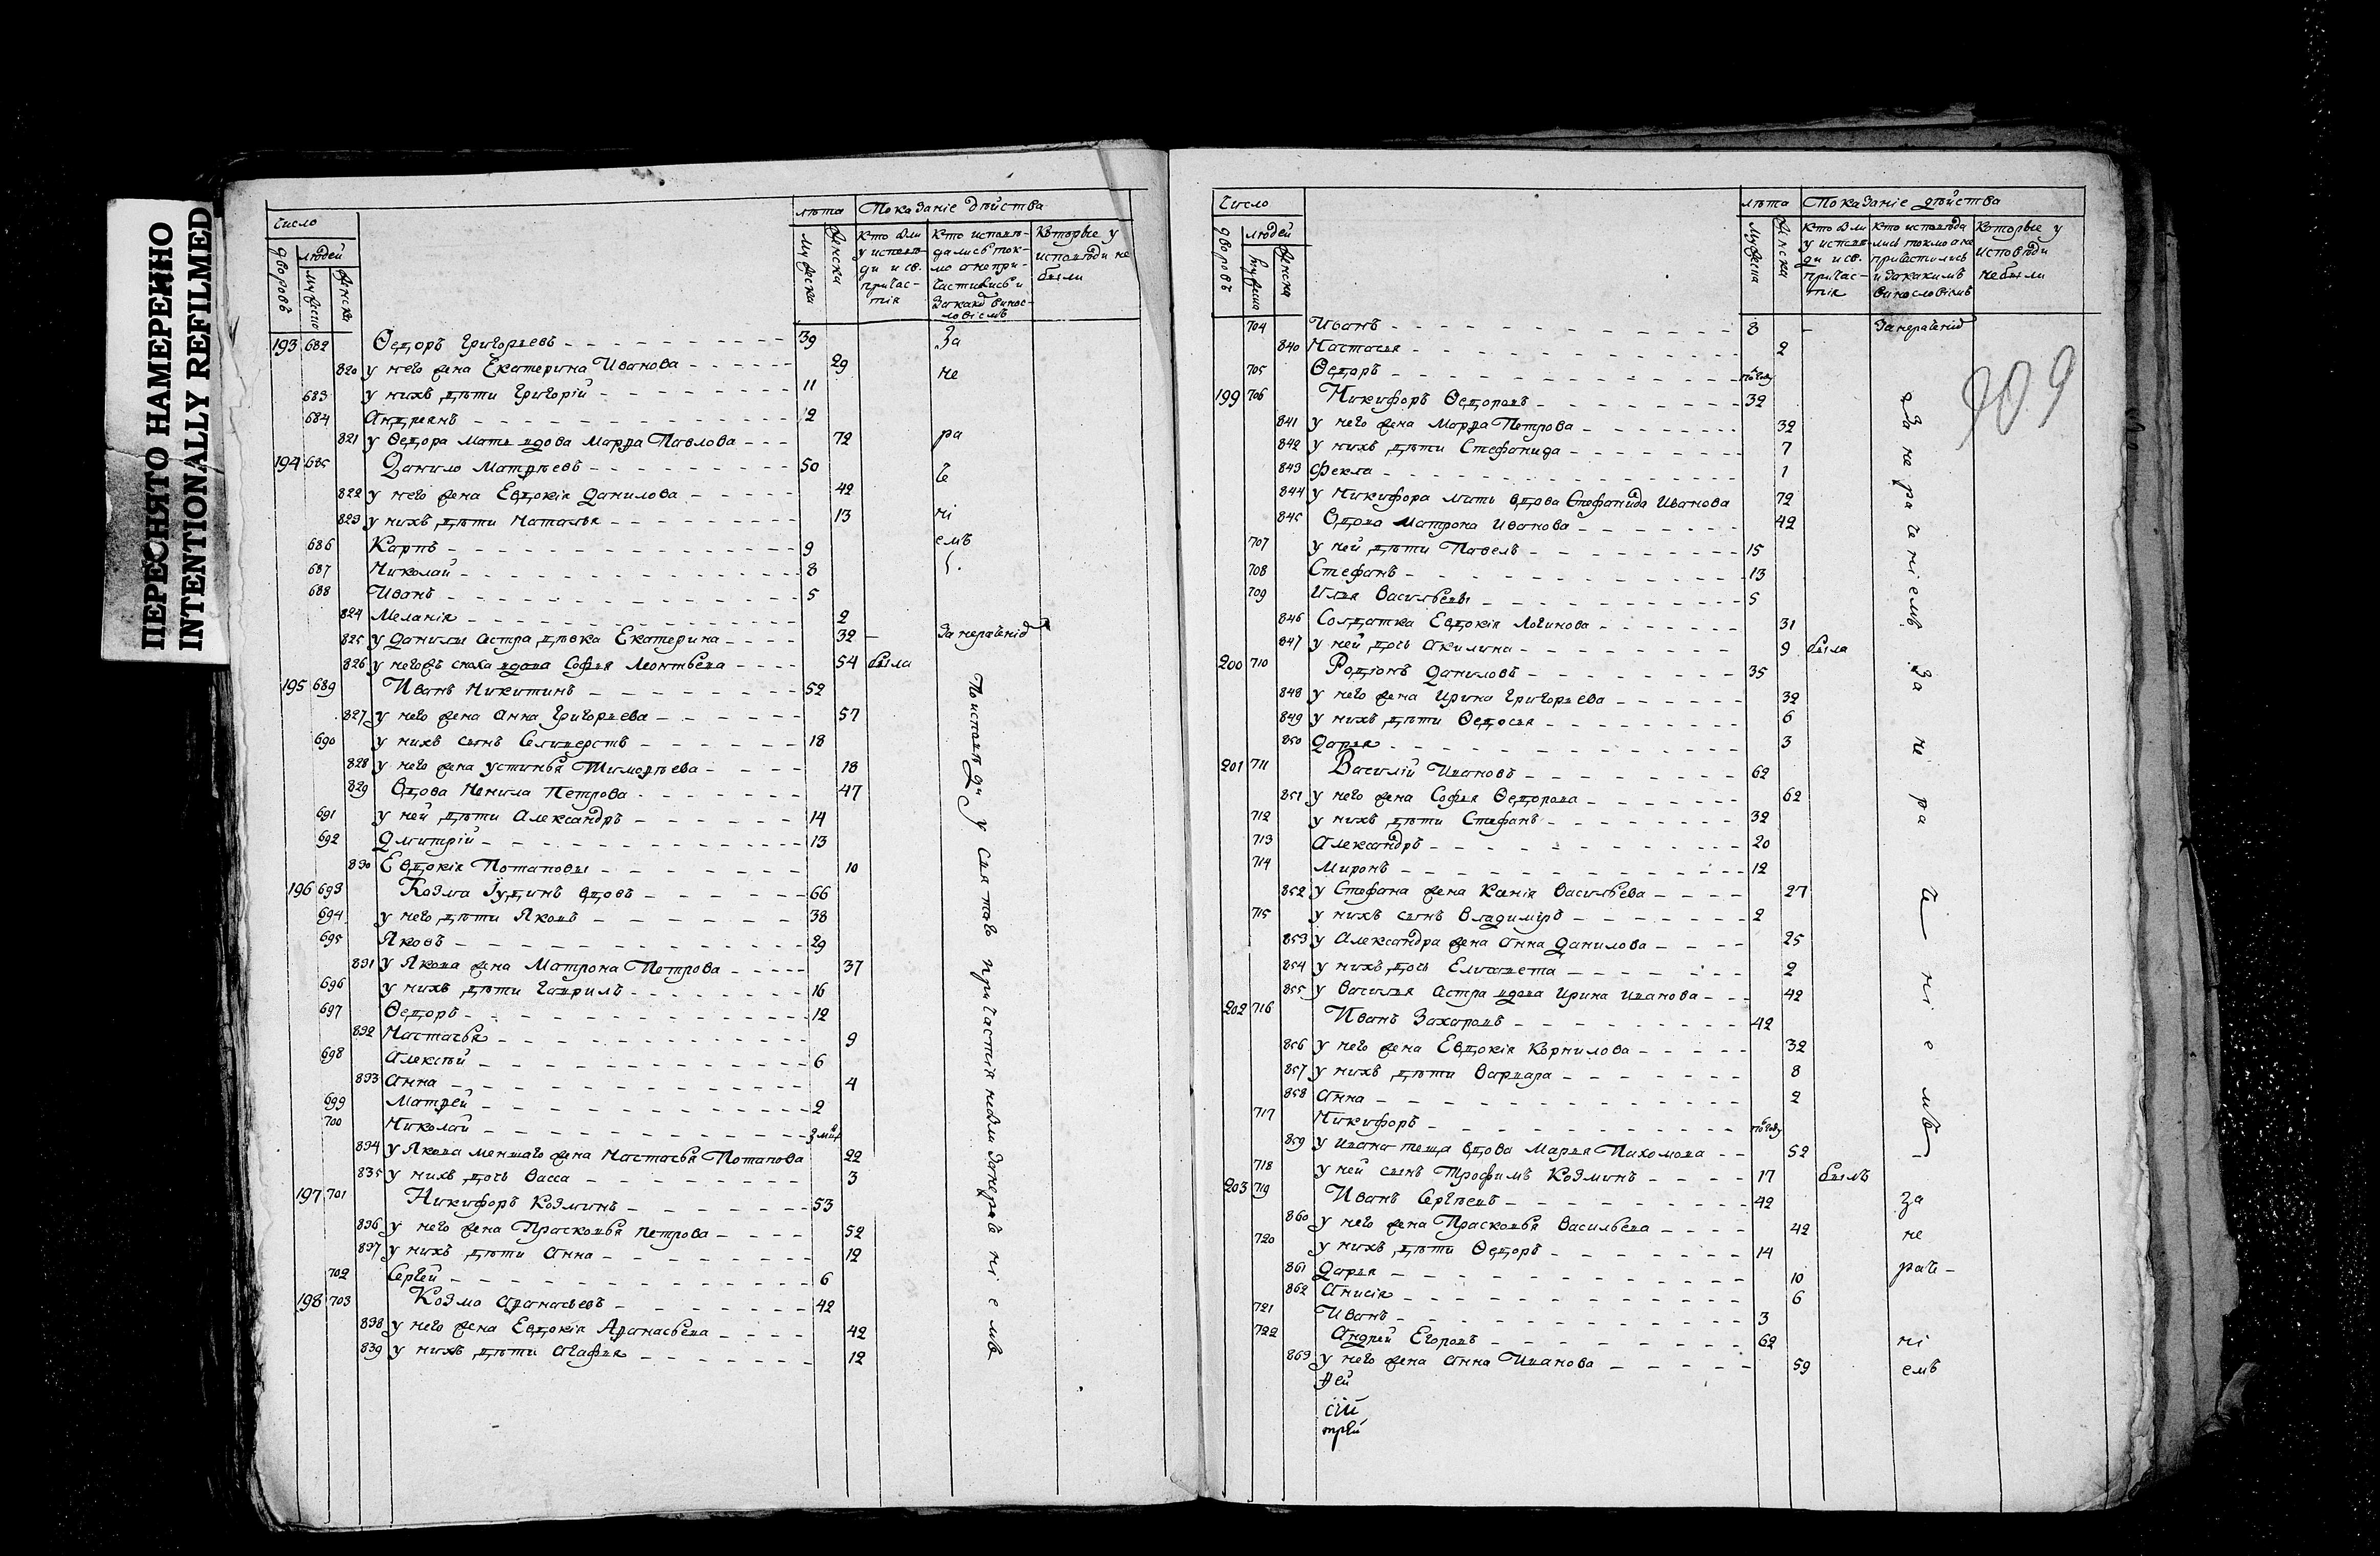 ПЕРЕСНЯТО НАМЕРЕННО
INTENTIONALLY REFILMED
Число
лѣта Показаніе дѣйства
дворовъ людей мужеска женска
мужеска женска
кто были у исповѣди и св. причастія
кто исповѣдались токмо а не причастились и за какимъ винословіемъ
которые у исповѣди не были
193 682 Ѳедоръ Григорьевъ 39 За
820 у него жена Екатерина Иванова 29 не
683 у нихъ дѣти Григорій 11
684 Андреянъ 2
821 у Ѳедора мать вдова Марѳа Павлова 72 ра
194 685 Данило Матѳѣевъ 50 че
822 у него жена Евдокія Данилова 42
823 у нихъ дѣти Наталья 13 ні
686 Карпъ 9 емъ
687 Николай 8
688 Иванъ 5
824 Меланія 2
825 у Данилы сестра дѣвка Екатерина 32 за нерачені
826 у него жъ сноха вдова Софья Леонтьева 54 была
195 689 Иванъ Никитинъ 52
827 у него жена Анна Григорьева 57
690 у нихъ сынъ Селиверстъ 18
828 у него жена Устинья Тимоѳѣева 18
829 Вдова Ненила Петрова 47
691 у ней дѣти Александръ 14
692 Дмитрій 13
830 Евдокія Потаповы 10
196 693 Козма Іудинъ вдовъ 66
694 у него дѣти Яковъ 38
695 Яковъ 29
831 у Якова жена Матрона Петрова 37
696 у нихъ дѣти Гаврилъ 16
697 Ѳедоръ 12
832 Настасья 9
698 Алексѣй 6
833 Анна 4
699 Матѳей 2
700 Николай
834 у Якова меншаго жена Настасья Потапова 22
835 у нихъ дочь Васса 3
197 701 Никифоръ Козминъ 53
836 у него жена Прасковья Петрова 52
837 у нихъ дѣти Анна 12
702 Сергей 6
198 703 Козма Аѳанасьевъ 42
838 у него жена Евдокія Аѳанасьева 42
839 у нихъ дѣти Агафья 12
По исповѣди у святаго причастія не были за нераченіемъ
Число
лѣта Показаніе дѣйства
дворовъ людей мужеска женска
мужеска женска
кто были у исповѣди и св. причастія
кто исповѣдались токмо а не причастились и за какимъ винословіемъ
которые у исповѣди не были
909
704 Иванъ 8 за нерачені
840 Настасья 2
705 Ѳедоръ по году
199 706 Никифоръ Ѳедоровъ 32
841 у него жена Марѳа Петрова 32
842 у нихъ дѣти Стефанида 7
843 Фекла 1
844 у Никифора мать вдова Стефанида Иванова 72
845 Вдова Матрона Иванова 42
707 у ней дѣти Павелъ 15
708 Стефанъ 13
709 Илья Васильевы 5
846 Солдатка Евдокія Логинова 31
847 у ней дочь Акилина 9 была
200 710 Родіонъ Даниловъ 35
848 у него жена Ирина Григорьева 32
849 у нихъ дѣти Ѳедосья 6
850 Дарья 3
201 711 Василій Ивановъ 62
851 у него жена Софья Ѳедорова 62
712 у нихъ дѣти Стефанъ 32
713 Александръ 20
714 Миронъ 12
852 у Стефана жена Ксенія Васильева 27
715 у нихъ сынъ Владиміръ 2
853 у Александра жена Анна Данилова 25
854 у нихъ дочь Елисавета 2
855 у Василья сестра вдова Ирина Иванова 42
202 716 Иванъ Захаровъ 42
856 у него жена Евдокія Корнилова 32
857 у нихъ дѣти Варвара 8
858 Анна 2
717 Никифоръ по году
859 у Ивана теща вдова Марья Пахомова 52
718 у ней сынъ Трофимъ Козминъ 17 былъ
203 719 Иванъ Сергѣевъ 42 за
860 у него жена Прасковья Васильева 42 не
720 у нихъ дѣти Ѳедоръ 14
861 Дарья 10 раче-
862 Анисія 6
721 Иванъ 3
722 Андрей Егоровъ 62 ні
863 у него жена Анна Иванова 59 емъ
За нераченіемъ
За нераченіемъ
сій
трей